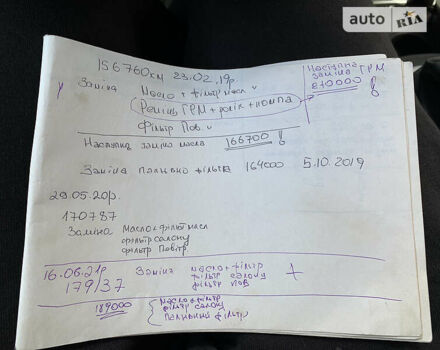 auto RIA
156760км 23.02.19р.
Заміна Масло + фільтр масл
Ремінь ГРМ + ролік + помпа
Фільтр Пов.
Наступна заміна масла 166700
Наступна
заміна ГРМ
210000
Заміна паливно фільтра 164000 5.10.2019
29.05.20р.
170787
Заміна Масло + фільт масл
фільтр салону
фільтр Повітр.
16.06.21р
179137
Заміна масло + фільтр
фільтр салону
фільтр пов
+
189000
масло + фільтр
фільтр салону
паливний фільтр